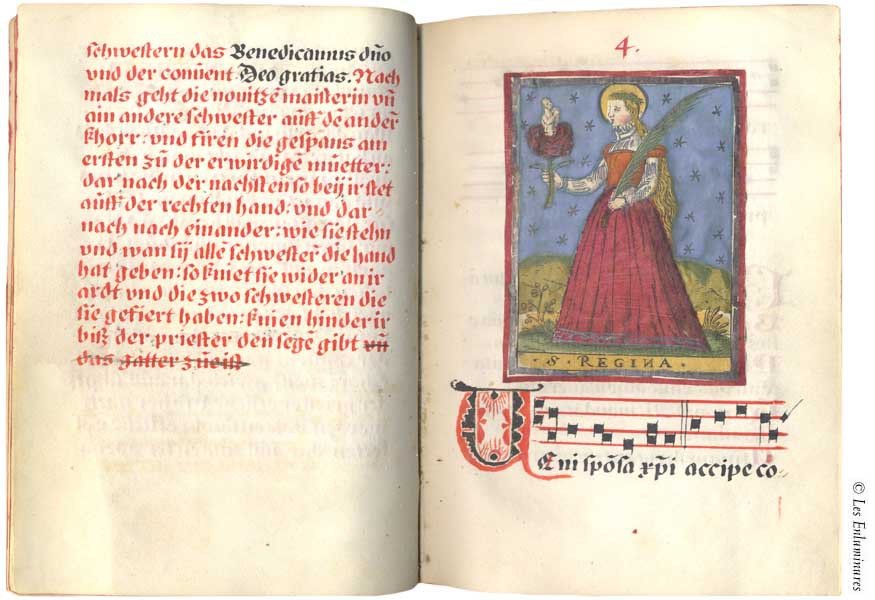 schwestern das Benedicamus dn̄o
vnd der conuent Deo gratias. Nach
mals geht die nouitzen maisterin vn̄
ain andere schwester auff dē andern̄
khorr: vnd fŭren die gespons am
ersten zŭ der erwirdigē mŭetter:
dar nach der nachsten so beÿ ir stet
auff der rechten hand: vnd dar
nach nach einander: wie sie stehn
vnd wan sÿ allē schwesterē die hand
hat geben: so kniet sie wider an ir
ardt vnd die zwo schwesteren die
sie gefiert haben: knien hinder ir
biß der priester den segē gibt vn̄
das gatter zŭeist
4.
· S · REGINA ·
Veni spōsa xp̄i accipe co-
© Les Enluminures